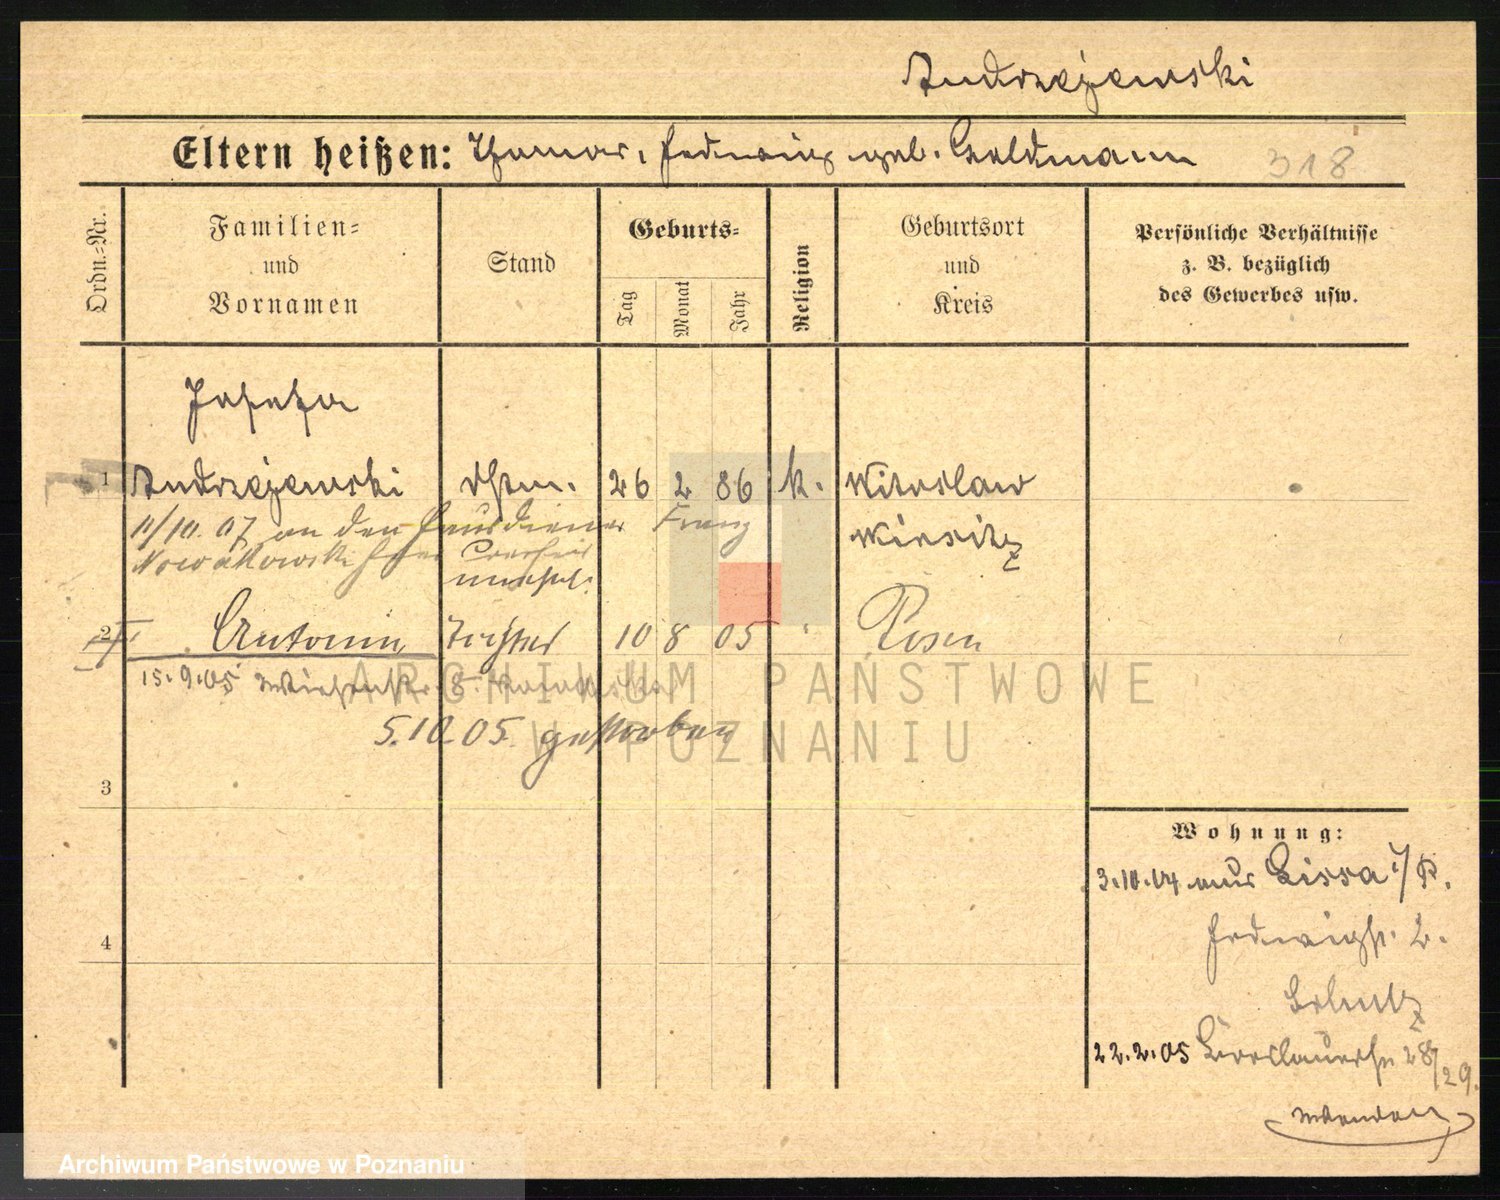 Andrzejewski
Eltern heißen: Thomas, Hedwig geb. Goldmann
318
Ordn.-Nr.
Familien- und Vornamen
Stand
Geburts-
Tag
Monat
Jahr
Religion
Geburtsort und Kreis
Persönliche Verhältnisse
z. B. bezüglich
des Gewerbes usw.
Josefa
1 Andrzejewski 26 2 86 k. Witoslaw
11/10. 07 an den Hausdiener Franz
Wirsitz
Nowakowski hier
2 Antonin Tochter 10 8 05 Posen
15.9.05 8.
5.10.05 gestorben
3
4
Wohnung:
3.10.04 aus Lissa i/P.
Hedwigstr. 2.
22.2.05 Breslauerstr 28/29.
ARCHIWUM PAŃSTWOWE
W POZNANIU
Archiwum Państwowe w Poznaniu